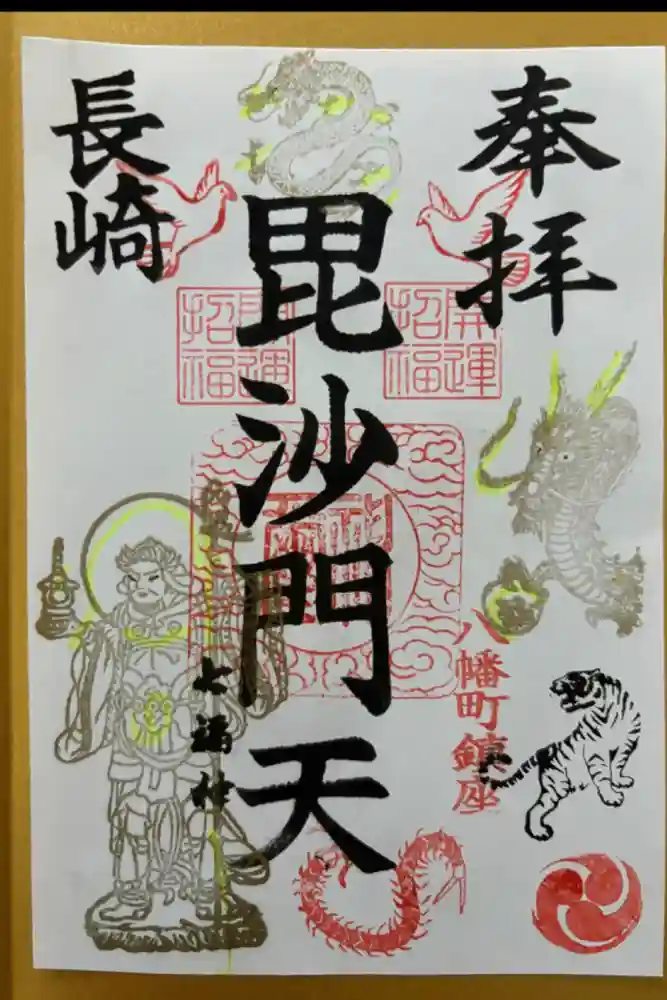 奉拝
開運
招福
開運
招福
八幡町鎮座
毘沙門天
七福神
長崎